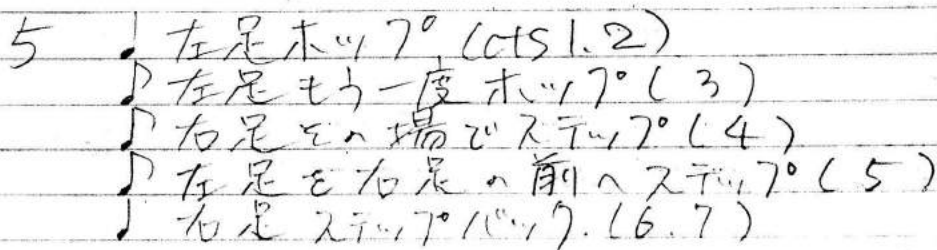 5 ♩ 左足ホップ (cts 1.2)
♪ 左足もう一度ホップ (3)
♪ 右足その場でステップ (4)
♪ 左足を右足の前へステップ (5)
♩ 右足ステップバック. (6.7)